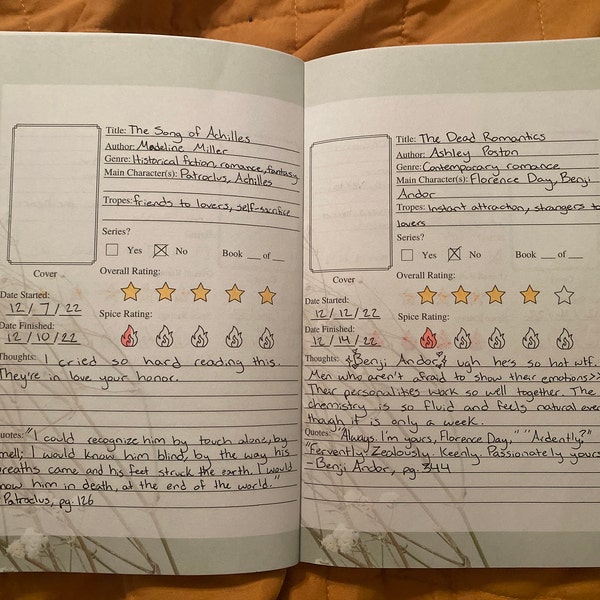 Title: The Song of Achilles
Author: Madeline Miller
Genre: Historical fiction, romance, fantasy
Main Character(s): Patroclus, Achilles
Tropes: friends to lovers, self-sacrifice
Series?
Yes No Book __ of __
Cover
Overall Rating:
Date Started:
12/7/22
Spice Rating:
Date Finished:
12/10/22
Thoughts: I cried so hard reading this.
They're in love your honor.
Quotes: "I could recognize him by touch alone, by
smell; I would know him blind, by the way his
breaths came and his feet struck the earth. I would
know him in death, at the end of the world."
Patroclus, pg. 126
Title: The Dead Romantics
Author: Ashley Poston
Genre: Contemporary romance
Main Character(s): Florence Day, Benji
Andor
Tropes: Instant attraction, strangers to
lovers
Series?
Yes No Book __ of __
Cover
Overall Rating:
Date Started:
12/12/22
Spice Rating:
Date Finished:
12/14/22
Thoughts: Benji Andor ugh he's so hot wtf.
Men who aren't afraid to show their emotions>>
Their personalities work so well together. The
chemistry is so fluid and feels natural even
though it is only a week.
Quotes: "Always. I'm yours, Florence Day." "Ardently?"
"Fervently. Zealously. Keenly. Passionately yours
- Benji Andor, pg. 344